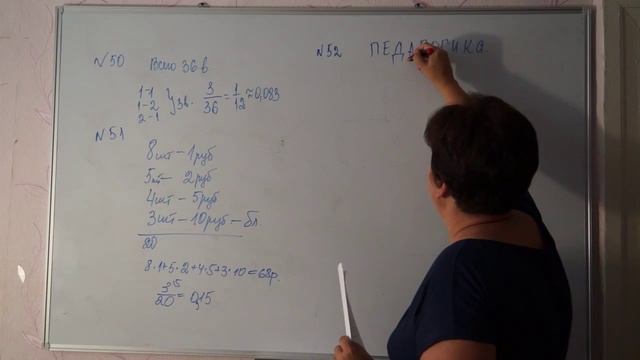 №50 Всего 36 в
1-1
1-2
2-1
} 3в. 3/36 = 1/12 ≈ 0,083
№51
8шт – 1руб
5шт – 2руб
4шт – 5руб
3шт – 10руб – бл
20
8·1+5·2+4·5+3·10=68р.
3/20 = 0,15
№52 ПЕДАГОГИКА.